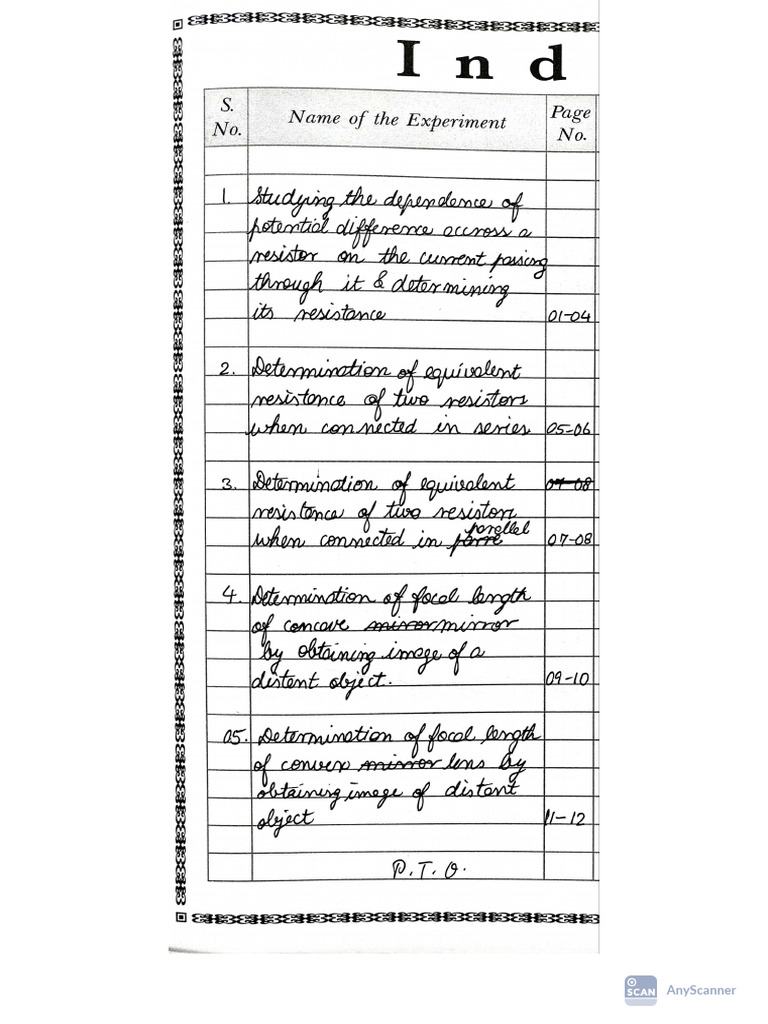 Ind
S. No. Name of the Experiment Page No.
1. Studying the dependence of
potential difference accross a
resistor on the current passing
through it & determining
its resistance 01-04
2. Determination of equivalent
resistance of two resistors
when connected in series 05-06
3. Determination of equivalent 07-08
resistance of two resistors
parallel
when connected in parre 07-08
4. Determination of focal length
of concave mirror mirror
by obtaining image of a
distent object. 09-10
05. Determination of focal length
of convex mirror lens by
obtaining image of distant
object 11-12
P.T.O.
SCAN AnyScanner